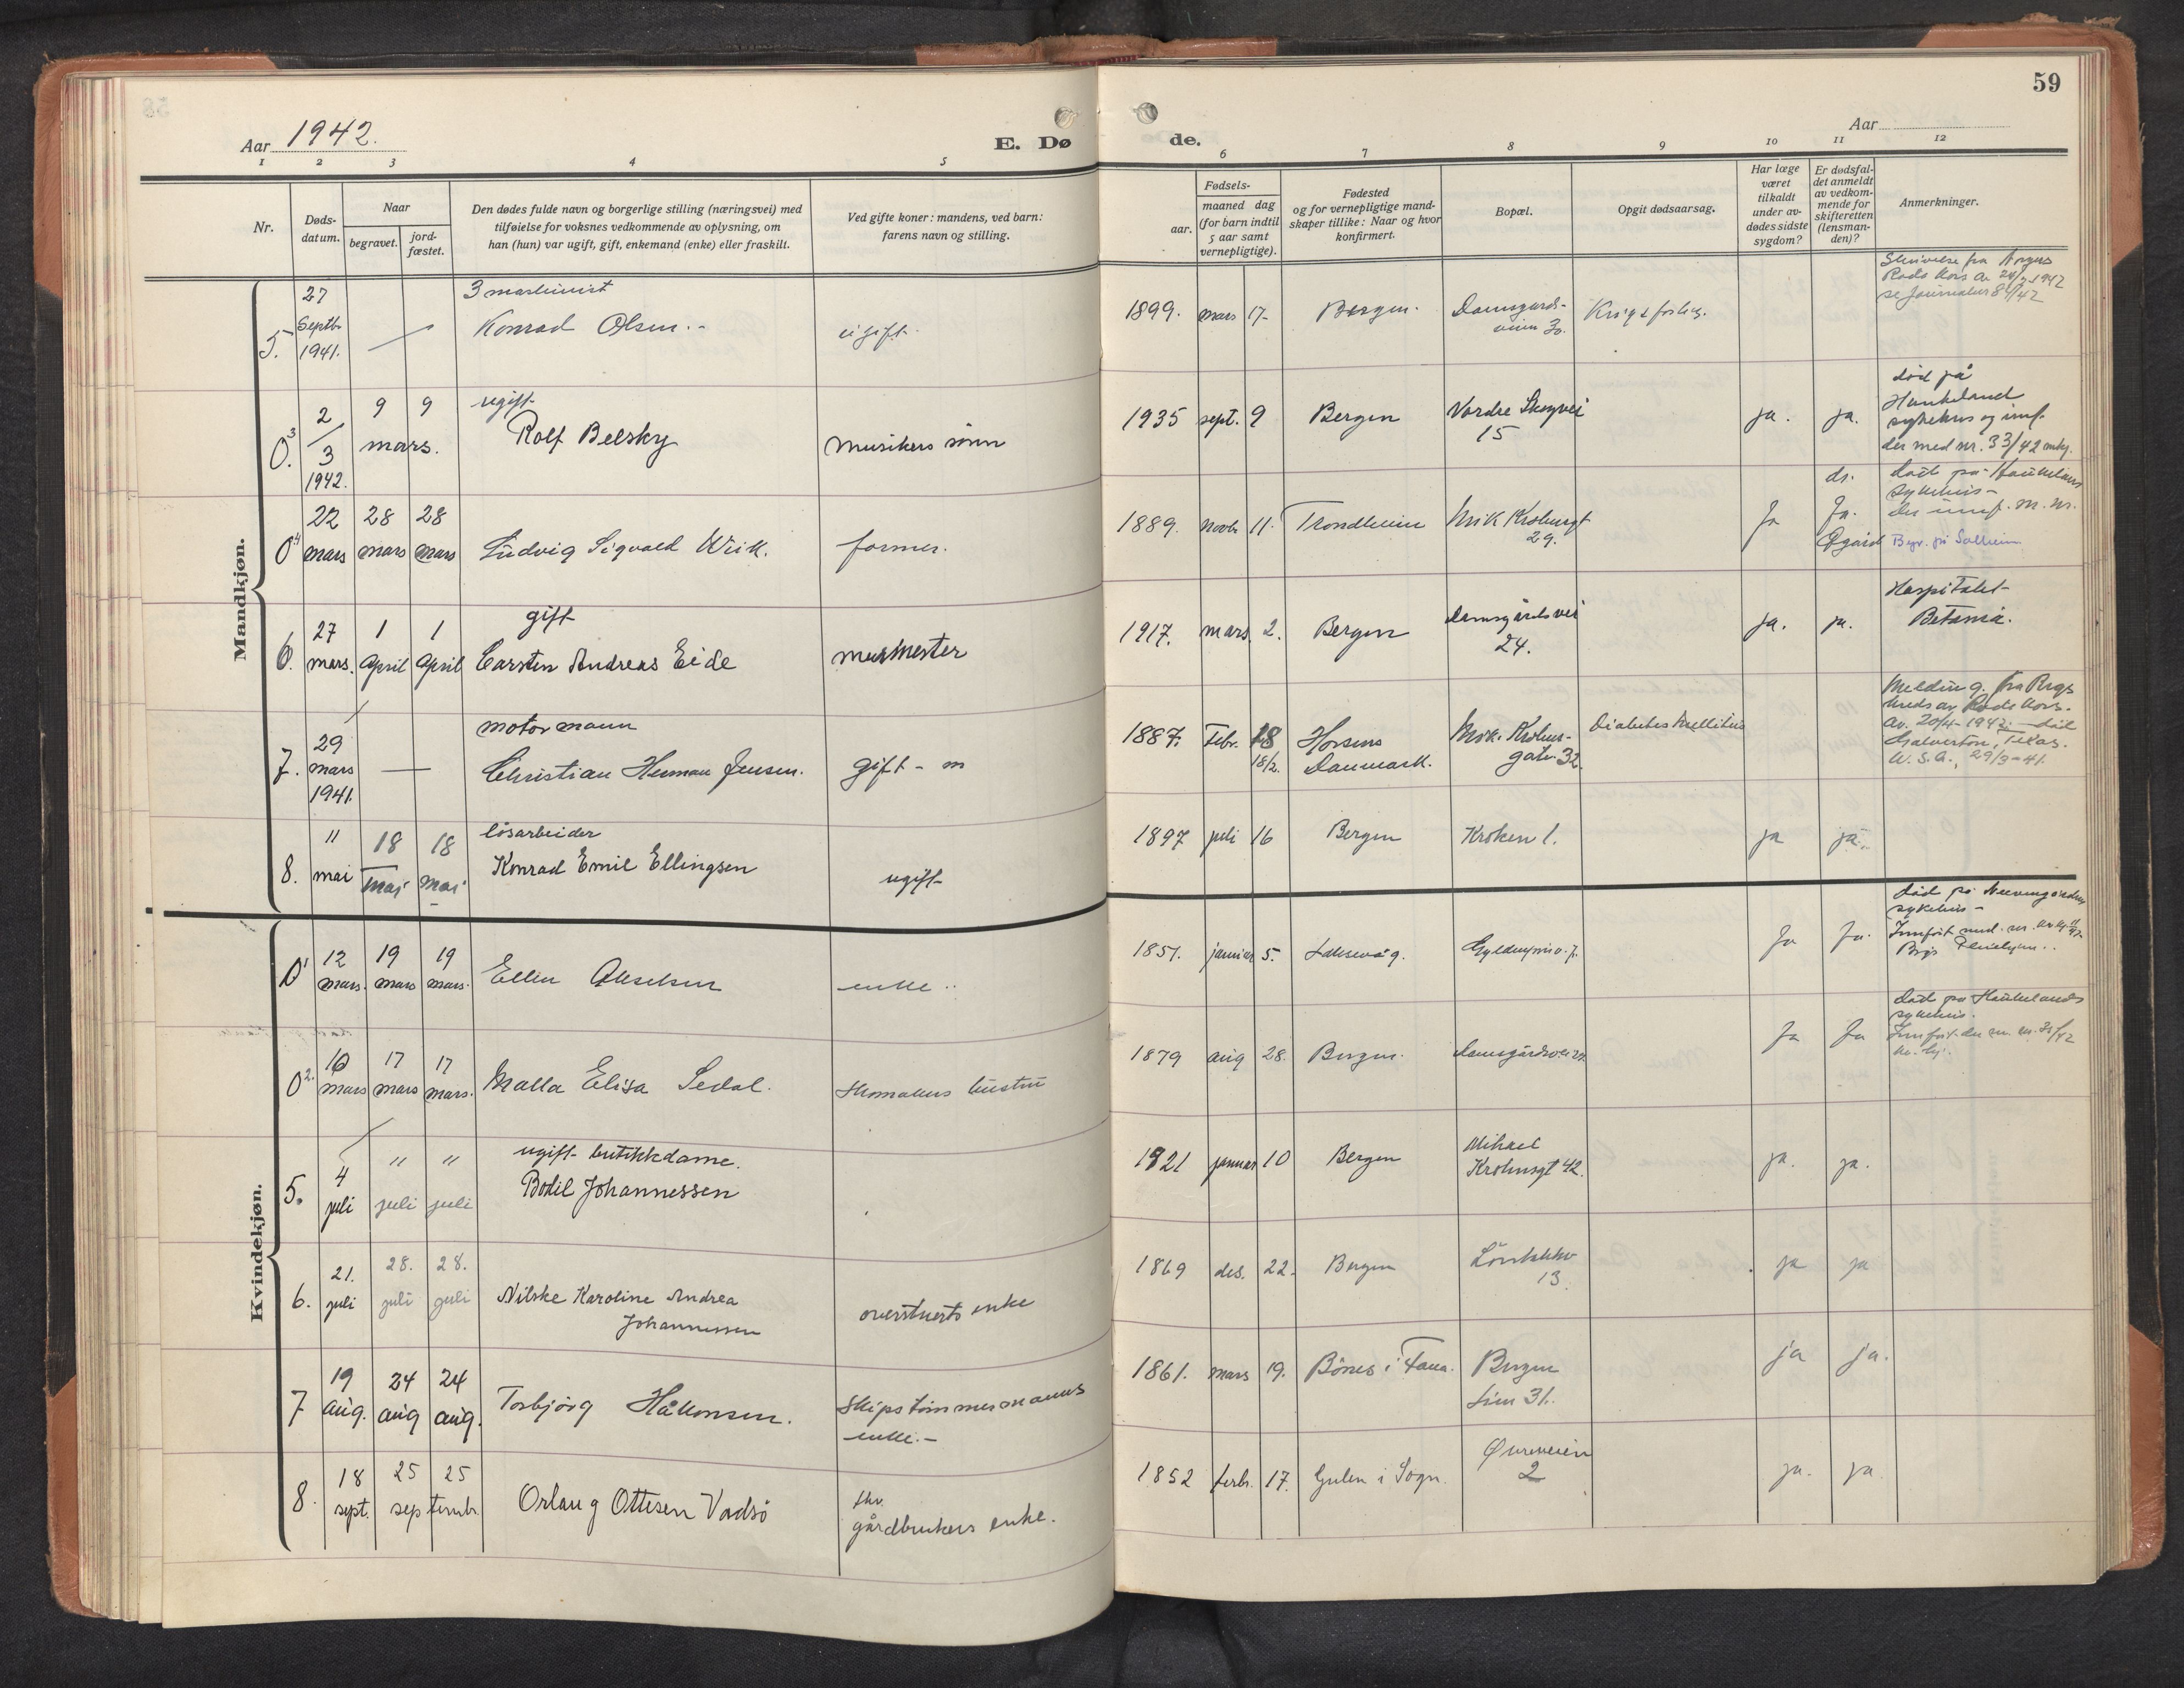 59
Aar 1942.
E. Dø
de.
Aar
1 2 3 4 5
6 7 8 9 10 11 12
Nr.
Døds-
datum.
Naar
begravet.
jord-
fæstet.
Den dødes fulde navn og borgerlige stilling (næringsvei) med
tilføielse for voksnes vedkommende av oplysning, om
han (hun) var ugift, gift, enkemand (enke) eller fraskilt.
Ved gifte koner: mandens, ved barn:
farens navn og stilling.
Fødsels-
aar.
maaned dag
(for barn indtil
5 aar samt
vernepligtige).
Fødested
og for vernepligtige mand-
skaper tillike: Naar og hvor
konfirmert.
Bopæl.
Opgit dødsaarsag.
Har læge
været
tilkaldt
under av-
dødes sidste
sygdom?
Er dødsfal-
det anmeldt
av vedkom-
mende for
skifteretten
(lensman-
den)?
Anmerkninger.
Mandkjøn.
5. 27 Septbr 1941. —
3 maskinist
Konrad Olsen.
1899. mars 17. Bergen. Damsgards-
veien 30.
Skrivelse fra Norges
Røde Kors
0.3 2/3 1942. 9 9 mars.
ugift
Rolf Belsky
Musikers sønn
1935 sept. 9 Bergen Nordre Skogvei
15
ja. ja.
død på
Haukeland
sykehus og innf.
der med nr. 33/42
04 22 mars 28 mars 28 mars
Ludvig Sigvald Wiik.
former.
1889. Novbr 11. Trondheim Mik Krohnsgt
29.
Ja Ja.
død på Haukeland
sykehus
Begr. på Solheim
6. 27 mars. 1 April 1 April
gift
Carsten Andreas Eide
murmester
1917. mars 2. Bergen Damsgårdsvei
24.
ja. ja.
Hospitalet
Betania.
7. 29 mars 1941. —
motormann
Christian Herman Jensen.
gift - m
1887. Febr. 18
18/2.
Horsens
Danmark.
Mik. Krohns-
gate 32.
Diabetes Mellitus
Melding fra
Røde Kors.
av. 20/4-1942. død
Galveston, Texas.
U.S.A., 29/3-41.
8. 11 mai 18 mai 18 mai
løsarbeider
Konrad Emil Ellingsen
ugift
1897 juli 16 Bergen Kroken 1.
ja ja.
Kvindekjøn.
01 12 mars. 19 mars 19 mars.
Ellen Akselsen
enke
1851. januar 5. Laksevåg.
Ja Ja.
død på
sykehus
02. 10 mars 17 mars 17 mars.
Malla Elisa Sedal.
Skomakers hustru
1879 aug 28. Bergen.
Ja Ja
død på Haukelands
sykehus.
5. 4 juli " juli " juli
ugift butikkdame.
Bodil Johannessen
1921 januar 10 Bergen Mikael
Krohnsgt 42.
ja. ja.
6. 21. juli 28. juli 28. juli
Nilske Karoline Andrea
Johannessen
overstuerts enke
1869 des. 22. Bergen
13.
ja ja
7 19 aug. 24 aug 24 aug.
Torbjørg Håkonsen.
Skipstømmermanns
enke.
1861. mars 19. Bönes i Fana. Bergen
31.
ja ja.
8. 18 sept. 25 25 septembr.
Orlaug Ottesen Vadsö
fhv.
gårdbrukers enke.
1852 febr. 17. Gulen i Sogn. Øvreveien
2
ja. ja